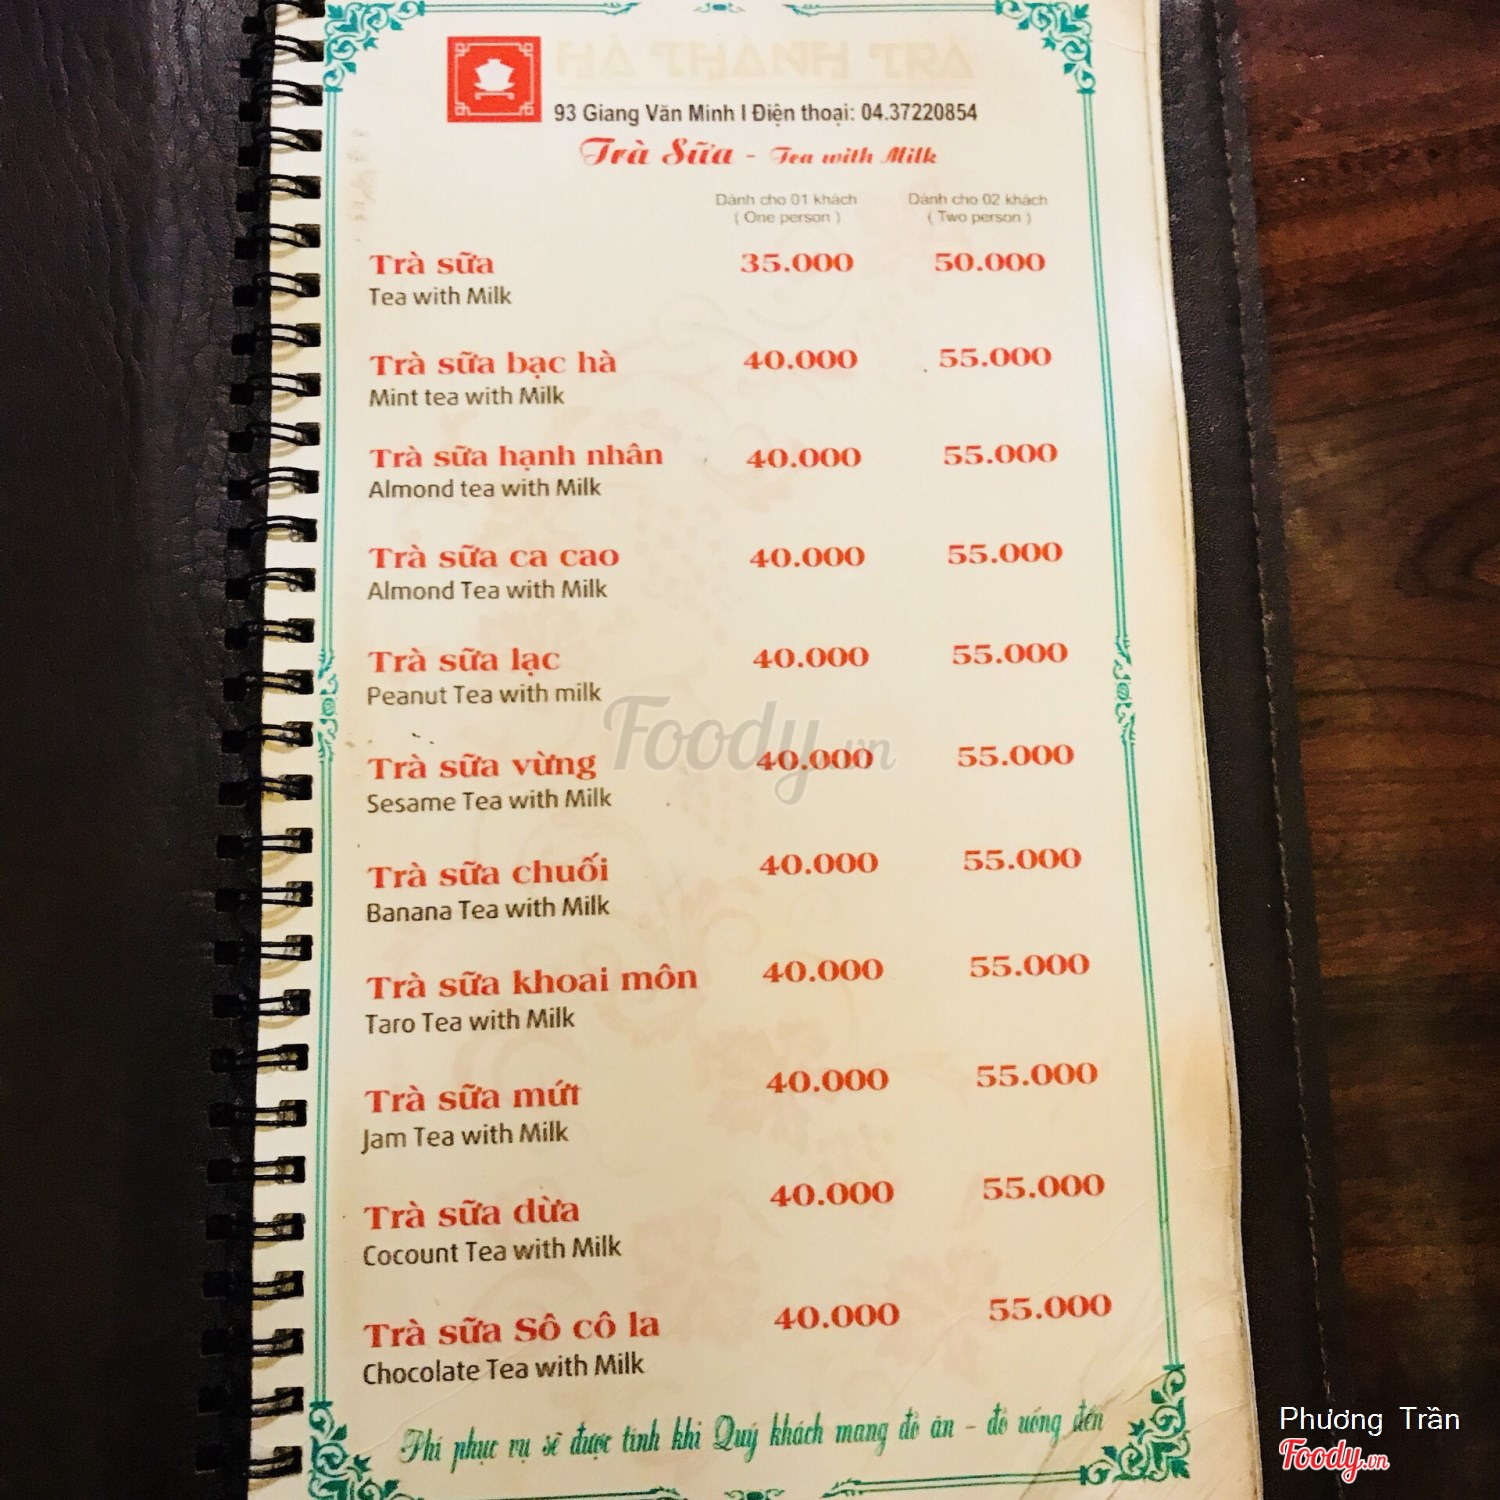 HÀ THÀNH TRÀ
93 Giang Văn Minh I Điện thoại: 04.37220854
Trà Sữa - Tea with Milk
Dành cho 01 khách Dành cho 02 khách
( One person ) ( Two person )
Trà sữa 35.000 50.000
Tea with Milk
Trà sữa bạc hà 40.000 55.000
Mint tea with Milk
Trà sữa hạnh nhân 40.000 55.000
Almond tea with Milk
Trà sữa ca cao 40.000 55.000
Almond Tea with Milk
Trà sữa lạc 40.000 55.000
Peanut Tea with milk
Foody.vn
Trà sữa vừng 40.000 55.000
Sesame Tea with Milk
Trà sữa chuối 40.000 55.000
Banana Tea with Milk
Trà sữa khoai môn 40.000 55.000
Taro Tea with Milk
Trà sữa mứt 40.000 55.000
Jam Tea with Milk
Trà sữa dừa 40.000 55.000
Cocount Tea with Milk
Trà sữa Sô cô la 40.000 55.000
Chocolate Tea with Milk
Phí phục vụ sẽ được tính khi Quý khách mang đồ ăn - đồ uống đến
Phương Trần
Foody.vn